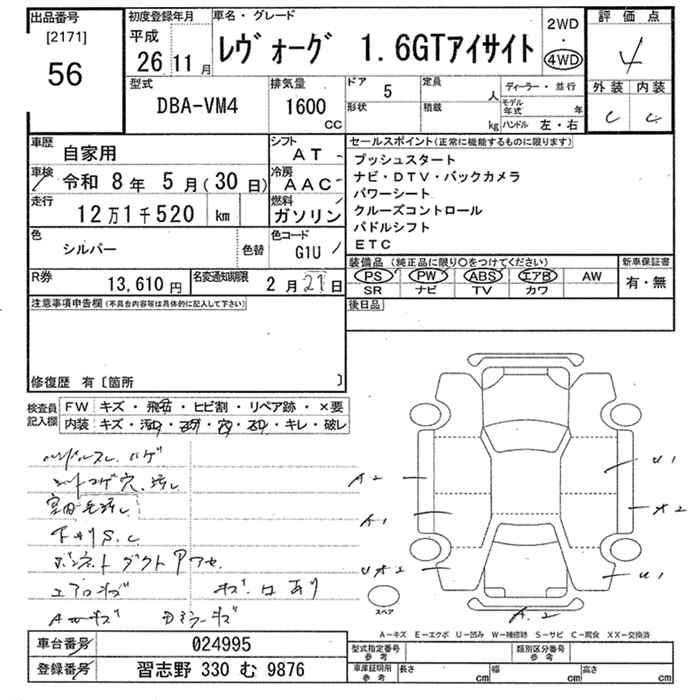 出品番号
[2171]
56
初度登録年月
平成
26 11 月
車名・グレード
レヴォーグ 1.6GTアイサイト
2WD
・
4WD
評価点
4
外装 内装
C C
型式
DBA-VM4
排気量
1600
CC
ドア 5
形状
定員 人
積載 kg
ディーラー・並行
モデル年式 年
ハンドル 左・右
車歴
自家用
シフト
AT
車検
令和 8年 5月(30日)
冷房
AAC
走行
12万1千520 km
燃料
ガソリン
色
シルバー
色替
色コード
G1U
R券
13,610円
名変通知期限
2月27日
セールスポイント(正常に機能するものに限ります)
プッシュスタート
ナビ・DTV・バックカメラ
パワーシート
クルーズコントロール
パドルシフト
ETC
装備品 (純正品に限り〇をつけてください)
PS PW ABS エアB AW
SR ナビ TV カワ
新車保証書
有・無
後日品
注意事項申告欄(不具合内容等は具体的に記入して下さい)
修復歴 有〔箇所 〕
検査員記入欄
FW キズ・飛石・ヒビ割・リペア跡・×要
内装 キズ・汚
キレ・破レ
ハンドルスレ、ハゲ
シートコゲ穴、汚レ
下廻りS、C
ボンネットダクトアセ
エアロキズ キズ凹あり
A2
A1
U1
U1
A2
スペア
A－キズ E－エクボ U－凹み W－補修跡 S－サビ C－腐食 XX－交換済
車台番号 024995
登録番号 習志野 330 む 9876
型式指定番号
参考
類別区分番号
参考
車庫証明用
参考
長さ cm 幅 cm 高さ cm